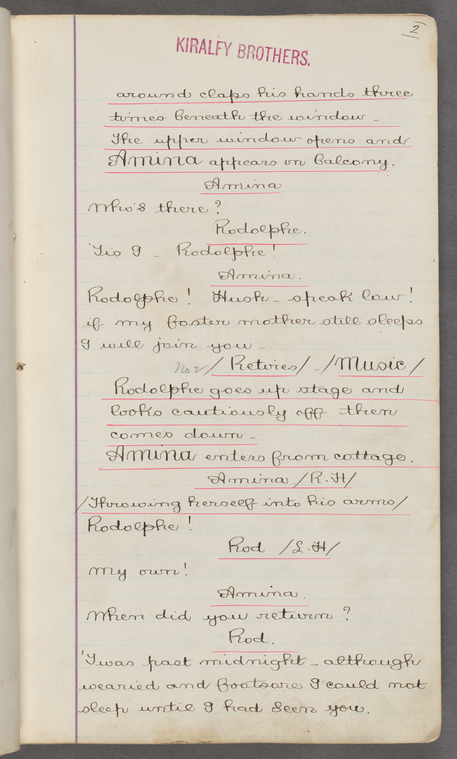 2
KIRALFY BROTHERS.
around claps his hands three
times beneath the window -
The upper window opens and
Amina appears on balcony.
Amina
Who's there?
Rodolphe.
'Tis I - Rodolphe!
Amina.
Rodolphe! Hush - speak low!
if my foster mother still sleeps
I will join you -
No 2 / Retires / - / Music /
Rodolphe goes up stage and
looks cautiously off then
comes down -
Amina enters from cottage.
Amina / R.H /
/ Throwing herself into his arms /
Rodolphe!
Rod / L.H /
My own!
Amina.
When did you return?
Rod.
'Twas past midnight - although
wearied and footsore I could not
sleep until I had seen you.